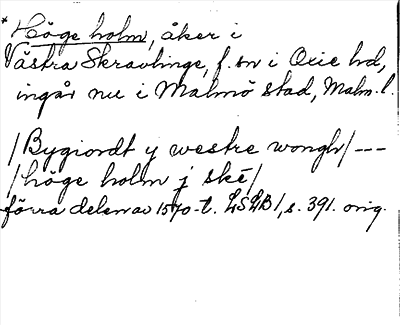 * Höge holm, åker i
Västra Skrävlinge, f. sn i Oxie hd,
ingår nu i Malmö stad, Malm. l.
/Bygiordt y westre wongh/ ---
/höge holm j skē/
förra delen av 1570-t. LSLB 1, s. 391. orig.